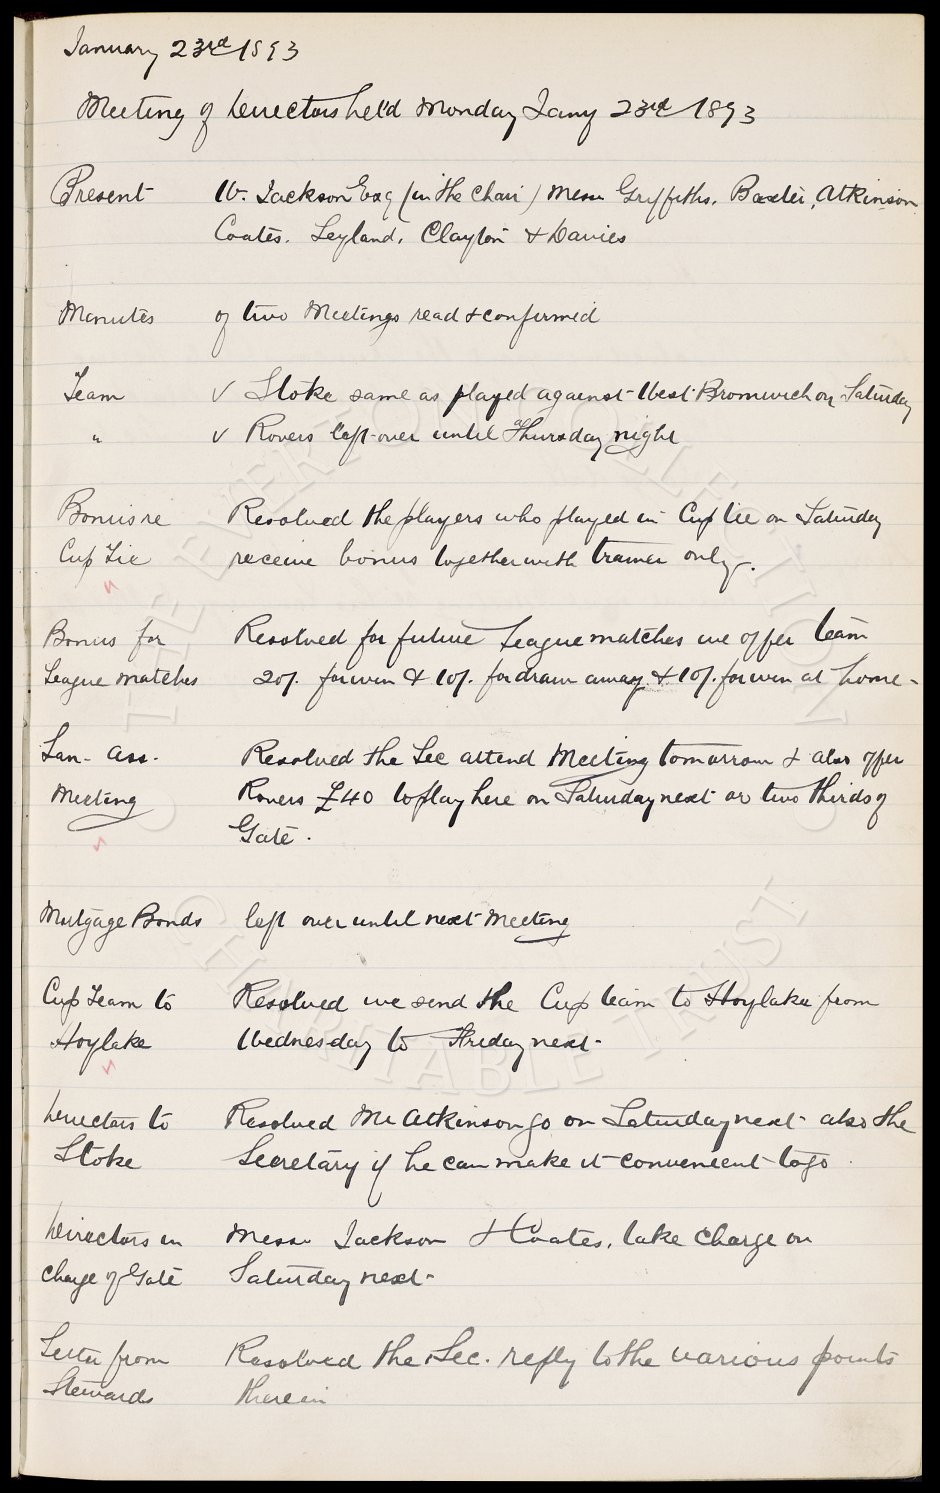 January 23rd 1893
Meeting of Directors held Monday Jany 23rd 1893
Present W. Jackson Esq (in the Chair) Messrs Griffiths, Baxter, Atkinson
Coates, Leyland, Clayton & Davies
Minutes of two Meetings read & confirmed
Team ✓ Stoke same as played against West Bromwich on Saturday
" ✓ Rovers left over until Thursday night
Bonus re Resolved the players who played in Cup tie on Saturday
Cup Tie receive bonus together with trainer only.
Bonus for Resolved for future League matches we offer team
League matches 20/. for win & 10/. for draw away & 10/. for win at home -
Lan. Ass. Resolved the Sec attend Meeting tomorrow & also offer
Meeting Rovers £40 to play here on Saturday next or two thirds of
Gate.
Mortgage Bonds left over until next Meeting
Cup Team to Resolved we send the Cup team to Hoylake from
Hoylake Wednesday to Friday next.
Directors to Resolved Mr Atkinson go on Saturday next also the
Stoke Secretary if he can make it convenient to go
Directors in Messrs Jackson & Coates, take charge on
charge of Gate Saturday next.
Letter from Resolved the Sec. reply to the various points
Stewards therein
THE EVERTON COLLECTION
CHARITABLE TRUST